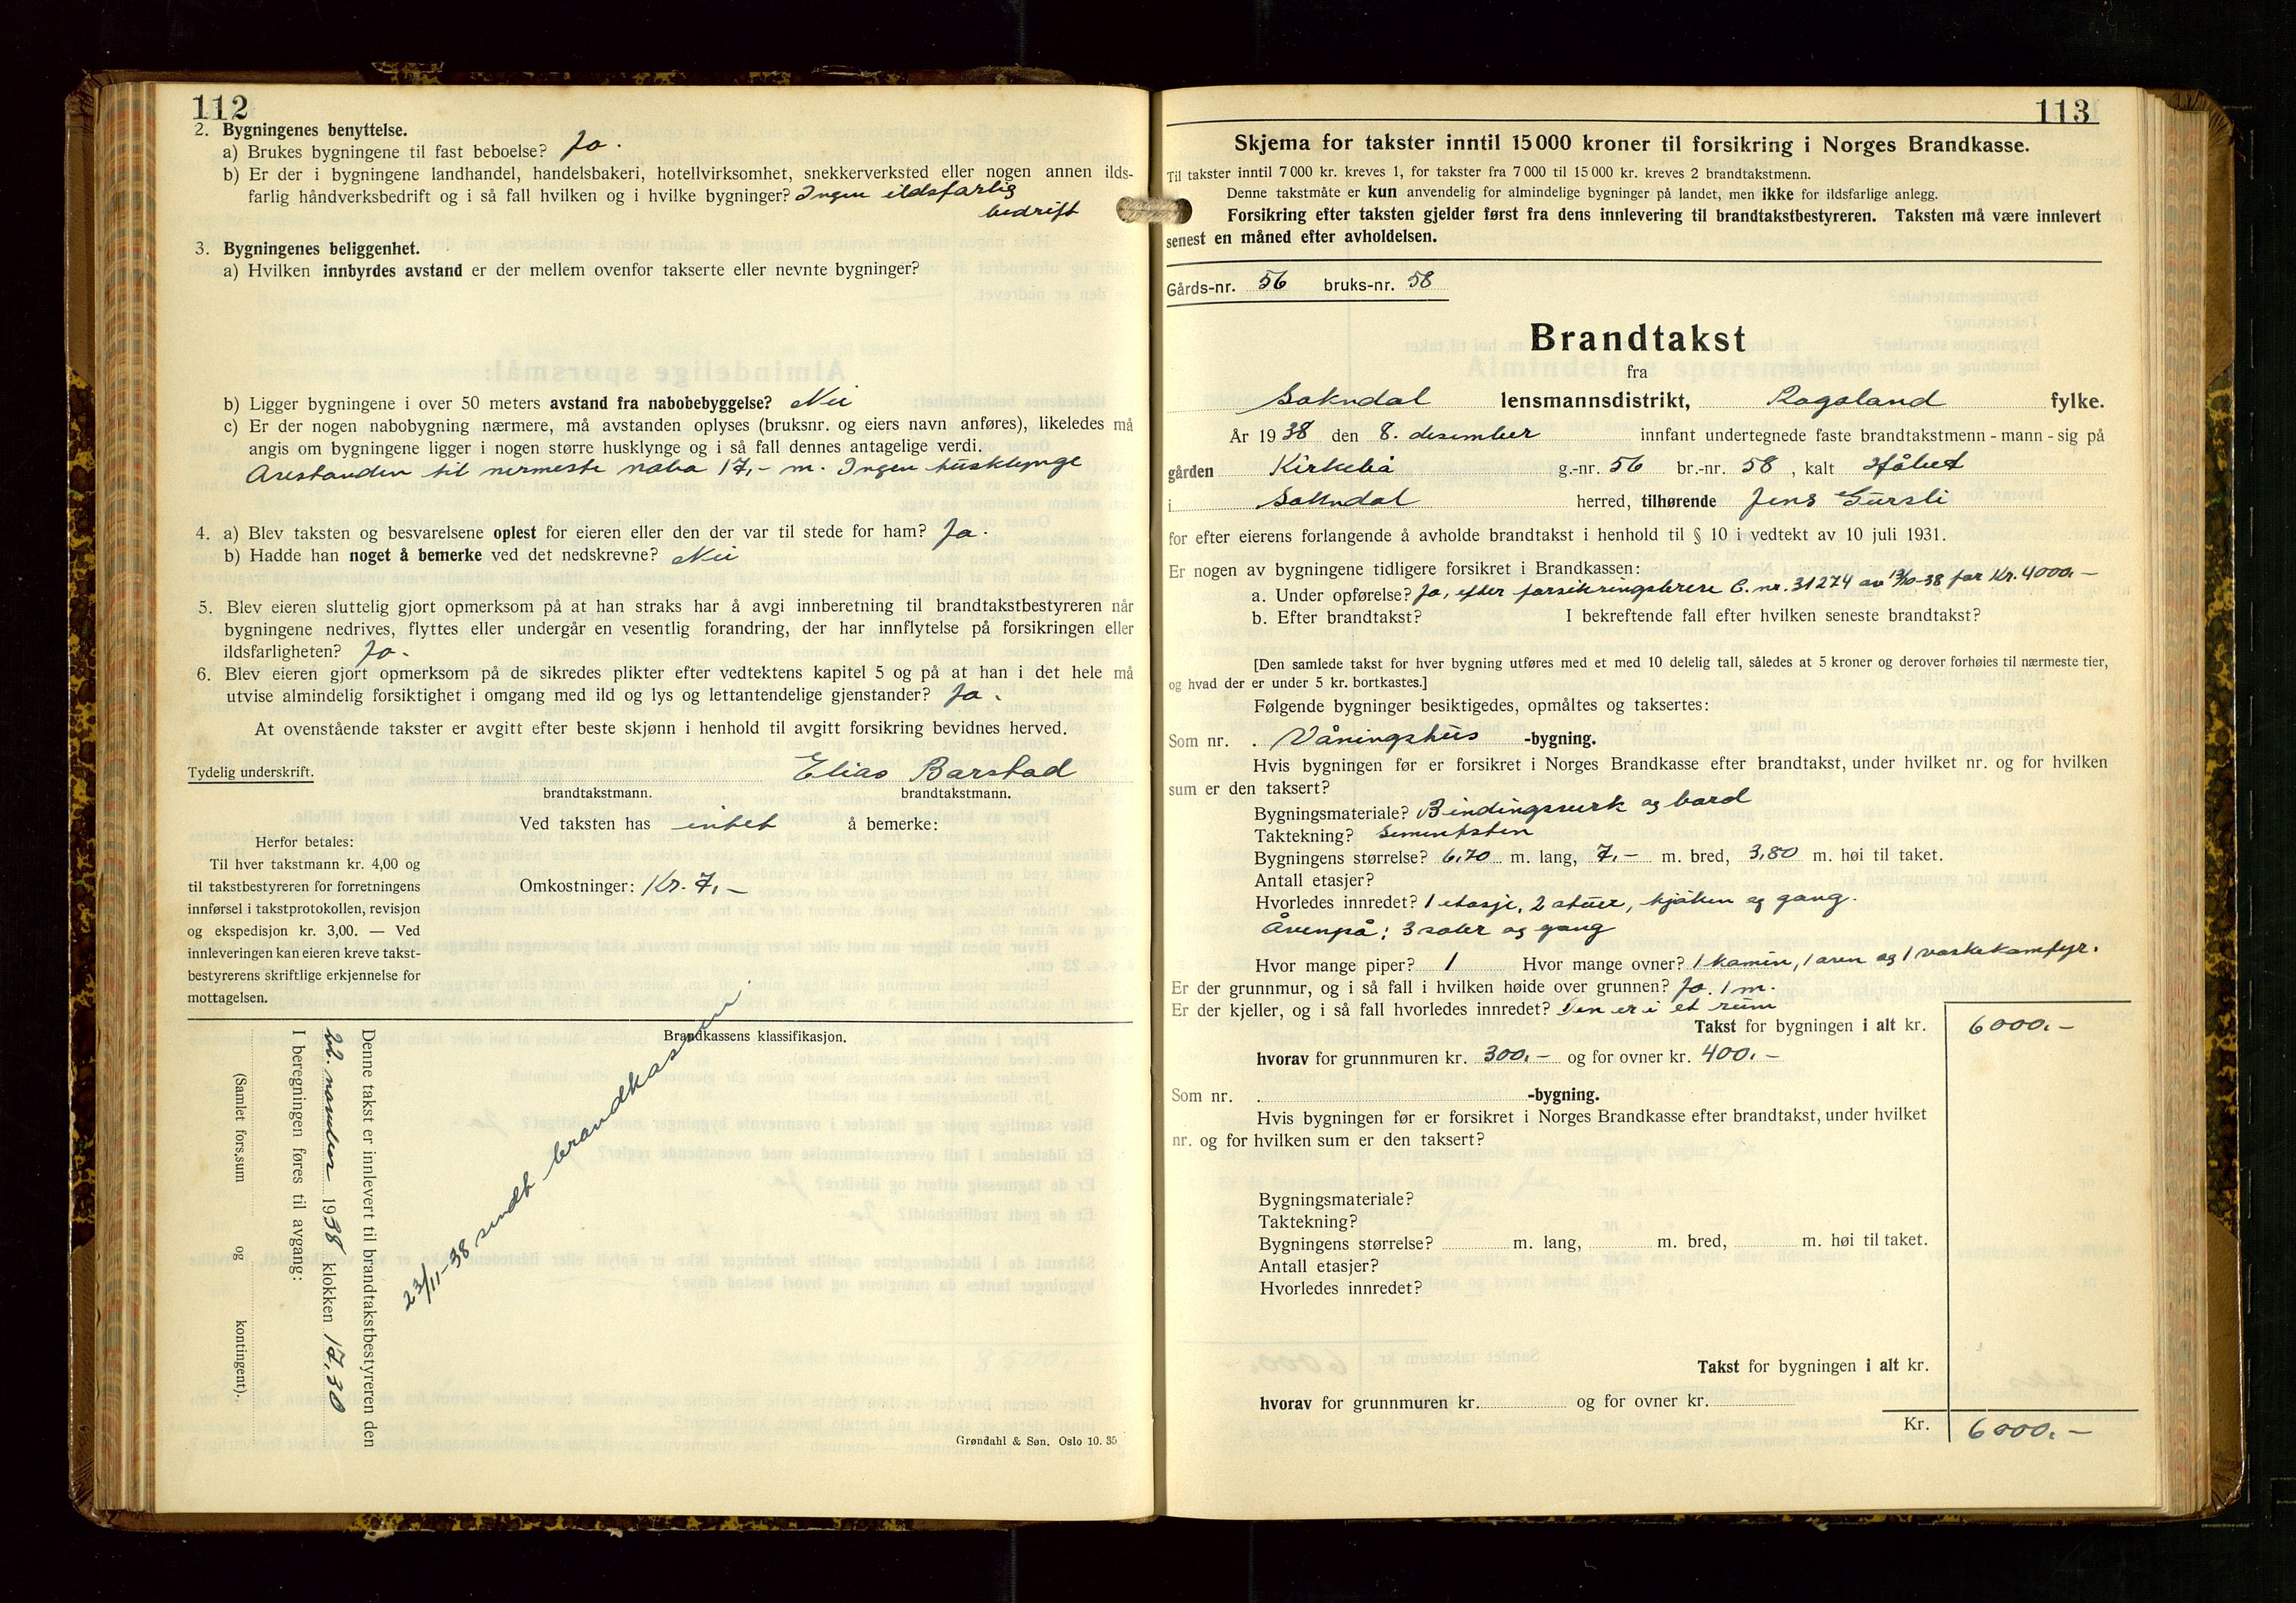 112
2. Bygningenes benyttelse.
a) Brukes bygningene til fast beboelse? Ja.
b) Er der i bygningene landhandel, handelsbakeri, hotellvirksomhet, snekkerverksted eller nogen annen ilds-
farlig håndverksbedrift og i så fall hvilken og i hvilke bygninger? Ingen ildsfarlig
bedrift
3. Bygningenes beliggenhet.
a) Hvilken innbyrdes avstand er der mellem ovenfor takserte eller nevnte bygninger?
b) Ligger bygningene i over 50 meters avstand fra nabobebyggelse? Nei
c) Er der nogen nabobygning nærmere, må avstanden oplyses (bruksnr. og eiers navn anføres), likeledes må
angis om bygningene ligger i nogen større husklynge og i så fall dennes antagelige verdi.
Avestanden til nermeste nabo 17,- m. Ingen husklynge
4. a) Blev taksten og besvarelsene oplest for eieren eller den der var til stede for ham? Ja.
b) Hadde han noget å bemerke ved det nedskrevne? Nei
5. Blev eieren sluttelig gjort opmerksom på at han straks har å avgi innberetning til brandtakstbestyreren når
bygningene nedrives, flyttes eller undergår en vesentlig forandring, der har innflytelse på forsikringen eller
ildsfarligheten? Ja.
6. Blev eieren gjort opmerksom på de sikredes plikter efter vedtektens kapitel 5 og på at han i det hele må
utvise almindelig forsiktighet i omgang med ild og lys og lettantendelige gjenstander? Ja.
At ovenstående takster er avgitt efter beste skjønn i henhold til avgitt forsikring bevidnes herved.
Tydelig underskrift. Elias Barstad
brandtakstmann. brandtakstmann.
Ved taksten has intet å bemerke:
Herfor betales:
Til hver takstmann kr. 4,00 og
til takstbestyreren for forretningens
innførsel i takstprotokollen, revisjon
og ekspedisjon kr. 3,00. — Ved
innleveringen kan eieren kreve takst-
bestyrerens skriftlige erkjennelse for
mottagelsen.
Omkostninger: Kr. 7,-
Brandkassens klassifikasjon.
23/11-38 sendt brandkassen.
Denne takst er innlevert til brandtakstbestyreren den
22. november 1938 klokken 17.30
I beregningen føres til avgang:
(Samlet fors.sum og kontingent).
Grøndahl & Søn, Oslo 10. 35
113
Skjema for takster inntil 15 000 kroner til forsikring i Norges Brandkasse.
Til takster inntil 7 000 kr. kreves 1, for takster fra 7 000 til 15 000 kr. kreves 2 brandtakstmenn.
Denne takstmåte er kun anvendelig for almindelige bygninger på landet, men ikke for ildsfarlige anlegg.
Forsikring efter taksten gjelder først fra dens innlevering til brandtakstbestyreren. Taksten må være innlevert
senest en måned efter avholdelsen.
Gårds-nr. 56 bruks-nr. 58
Brandtakst
fra
Sokndal lensmannsdistrikt, Rogaland fylke.
År 1938 den 8. desember innfant undertegnede faste brandtakstmenn - mann - sig på
gården Kirkebø g.-nr. 56 br.-nr. 58, kalt
i Sokndal herred, tilhørende Jens Gursli
for efter eierens forlangende å avholde brandtakst i henhold til § 10 i vedtekt av 10 juli 1931.
Er nogen av bygningene tidligere forsikret i Brandkassen:
a. Under opførelse? Ja, efter forsikringsbreve C. nr. 31274 av 13/10-38 for Kr. 4000.-
b. Efter brandtakst? I bekreftende fall efter hvilken seneste brandtakst?
[Den samlede takst for hver bygning utføres med et med 10 delelig tall, således at 5 kroner og derover forhøies til nærmeste tier,
og hvad der er under 5 kr. bortkastes.]
Følgende bygninger besiktigedes, opmåltes og taksertes:
Som nr. . Våningshus -bygning.
Hvis bygningen før er forsikret i Norges Brandkasse efter brandtakst, under hvilket nr. og for hvilken
sum er den taksert?
Bygningsmateriale? Bindingsverk og bord
Taktekning? Sementsten
Bygningens størrelse? 6,70 m. lang, 7,- m. bred, 3,80 m. høi til taket.
Antall etasjer?
Hvorledes innredet? 1 etasje, 2 stuer, kjøken og gang.
Ovenpå: 3 soler og gang
Hvor mange piper? 1 Hvor mange ovner? 1 kamin, 1 oven og 1 vaskekomfyr.
Er der grunnmur, og i så fall i hvilken høide over grunnen? Ja. 1 m.
Er der kjeller, og i så fall hvorledes innredet? Den er i et rum
Takst for bygningen i alt kr. 6000.-
hvorav for grunnmuren kr. 300.- og for ovner kr. 400.-
Som nr. . -bygning.
Hvis bygningen før er forsikret i Norges Brandkasse efter brandtakst, under hvilket
nr. og for hvilken sum er den taksert?
Bygningsmateriale?
Taktekning?
Bygningens størrelse? m. lang, m. bred, m. høi til taket.
Antall etasjer?
Hvorledes innredet?
Takst for bygningen i alt kr.
hvorav for grunnmuren kr. og for ovner kr.
Kr. 6000.-